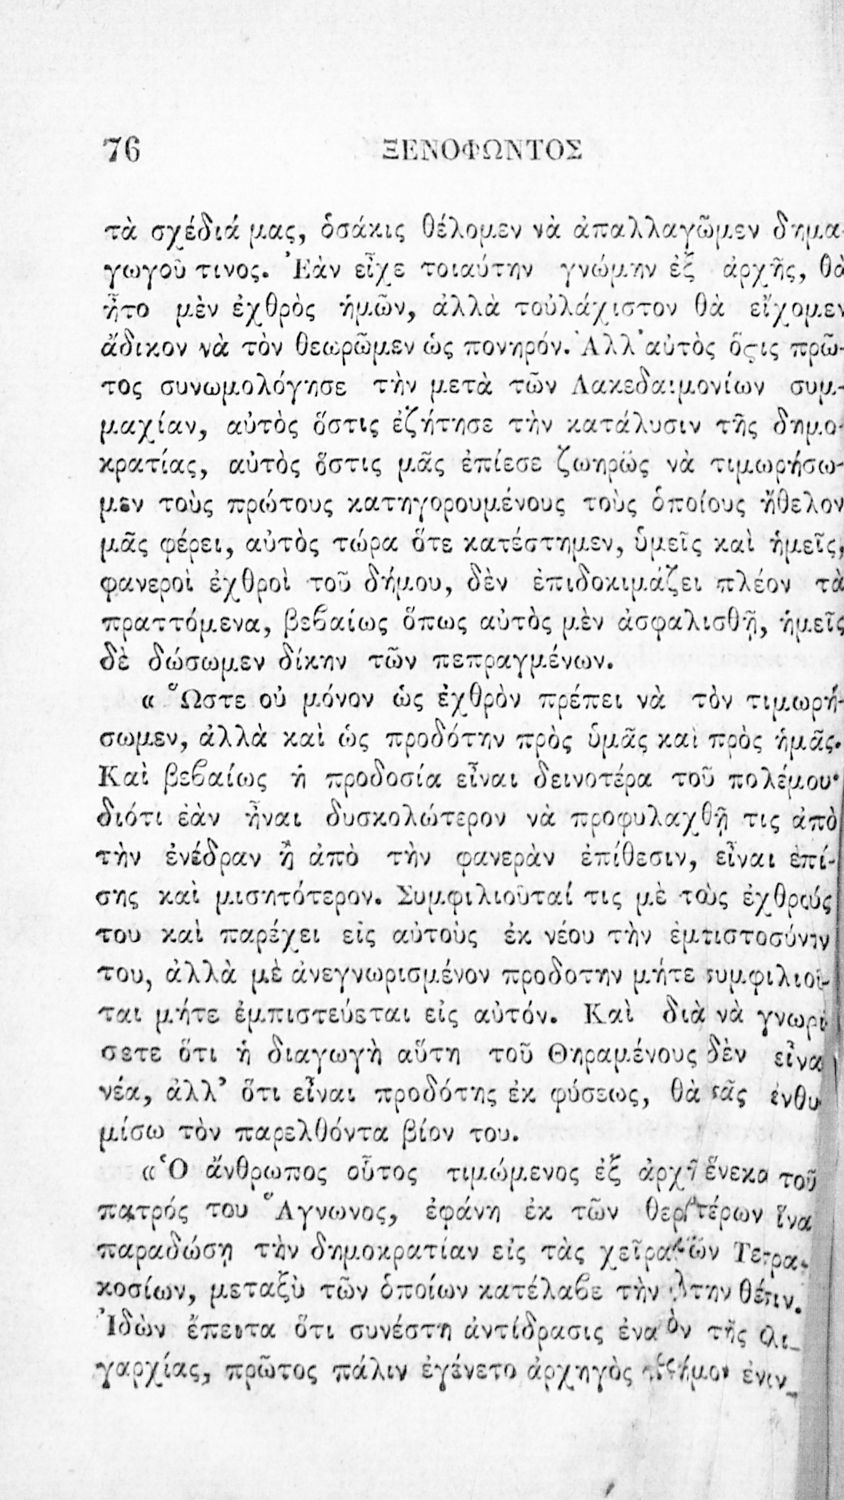 76 ΞΕΝΟΦΩΝΤΟΣ
τὰ σχέδιά μας, ὁσάκις θέλομεν νὰ ἀπαλλαγῶμεν δημα-
γωγοῦ τινος. Ἐὰν εἶχε τοιαύτην γνώμην ἐξ ἀρχῆς, θὰ
ἦτο μὲν ἐχθρὸς ἡμῶν, ἀλλὰ τοὐλάχιστον θὰ εἴχομεν
ἄδικον νὰ τὸν θεωρῶμεν ὡς πονηρόν. Ἀλλ᾽ αὐτὸς ὅςις πρῶ-
τος συνωμολόγησε τὴν μετὰ τῶν Λακεδαιμονίων συμ-
μαχίαν, αὐτὸς ὅστις ἐζήτησε τὴν κατάλυσιν τῆς δημο-
κρατίας, αὐτὸς ὅστις μᾶς ἐπίεσε ζωηρῶς νὰ τιμωρήσω-
μεν τοὺς πρώτους κατηγορουμένους τοὺς ὁποίους ἤθελον
μᾶς φέρει, αὐτὸς τώρα ὅτε κατέστημεν, ὑμεῖς καὶ ἡμεῖς,
φανεροὶ ἐχθροὶ τοῦ δήμου, δὲν ἐπιδοκιμάζει πλέον τὰ
πραττόμενα, βεβαίως ὅπως αὐτὸς μὲν ἀσφαλισθῇ, ἡμεῖς
δὲ δώσωμεν δίκην τῶν πεπραγμένων.
« Ὥστε οὐ μόνον ὡς ἐχθρὸν πρέπει νὰ τὸν τιμωρή-
σωμεν, ἀλλὰ καὶ ὡς προδότην πρὸς ὑμᾶς καὶ πρὸς ἡμᾶς.
Καὶ βεβαίως ἡ προδοσία εἶναι δεινοτέρα τοῦ πολέμου·
διότι ἐὰν ἦναι δυσκολώτερον νὰ προφυλαχθῇ τις ἀπὸ
τὴν ἐνέδραν ἢ ἀπὸ τὴν φανερὰν ἐπίθεσιν, εἶναι ἐπί-
σης καὶ μισητότερον. Συμφιλιοῦταί τις μὲ τοὺς ἐχθρούς
του καὶ παρέχει εἰς αὐτοὺς ἐκ νέου τὴν ἐμπιστοσύνην
του, ἀλλὰ μὲ ἀνεγνωρισμένον προδότην μήτε συμφιλιοῦ-
ται μήτε ἐμπιστεύεται εἰς αὐτόν. Καὶ διὰ νὰ γνωρί
σετε ὅτι ἡ διαγωγὴ αὕτη τοῦ Θηραμένους δὲν εἶναι
νέα, ἀλλ᾽ ὅτι εἶναι προδότης ἐκ φύσεως, θὰ σᾶς ἐνθυ
μίσω τὸν παρελθόντα βίον του.
«Ὁ ἄνθρωπος οὗτος τιμώμενος ἐξ ἀρχῆς ἕνεκα τοῦ
πατρός του Ἅγνωνος, ἐφάνη ἐκ τῶν θερμοτέρων ἵνα
παραδώσῃ τὴν δημοκρατίαν εἰς τὰς χεῖρας τῶν Τετρα-
κοσίων, μεταξὺ τῶν ὁποίων κατέλαβε τὴν θέσιν.
Ἰδὼν ἔπειτα ὅτι συνέστη ἀντίδρασις τῆς ὀλι-
γαρχίας, πρῶτος πάλιν ἐγένετο ἀρχηγὸς